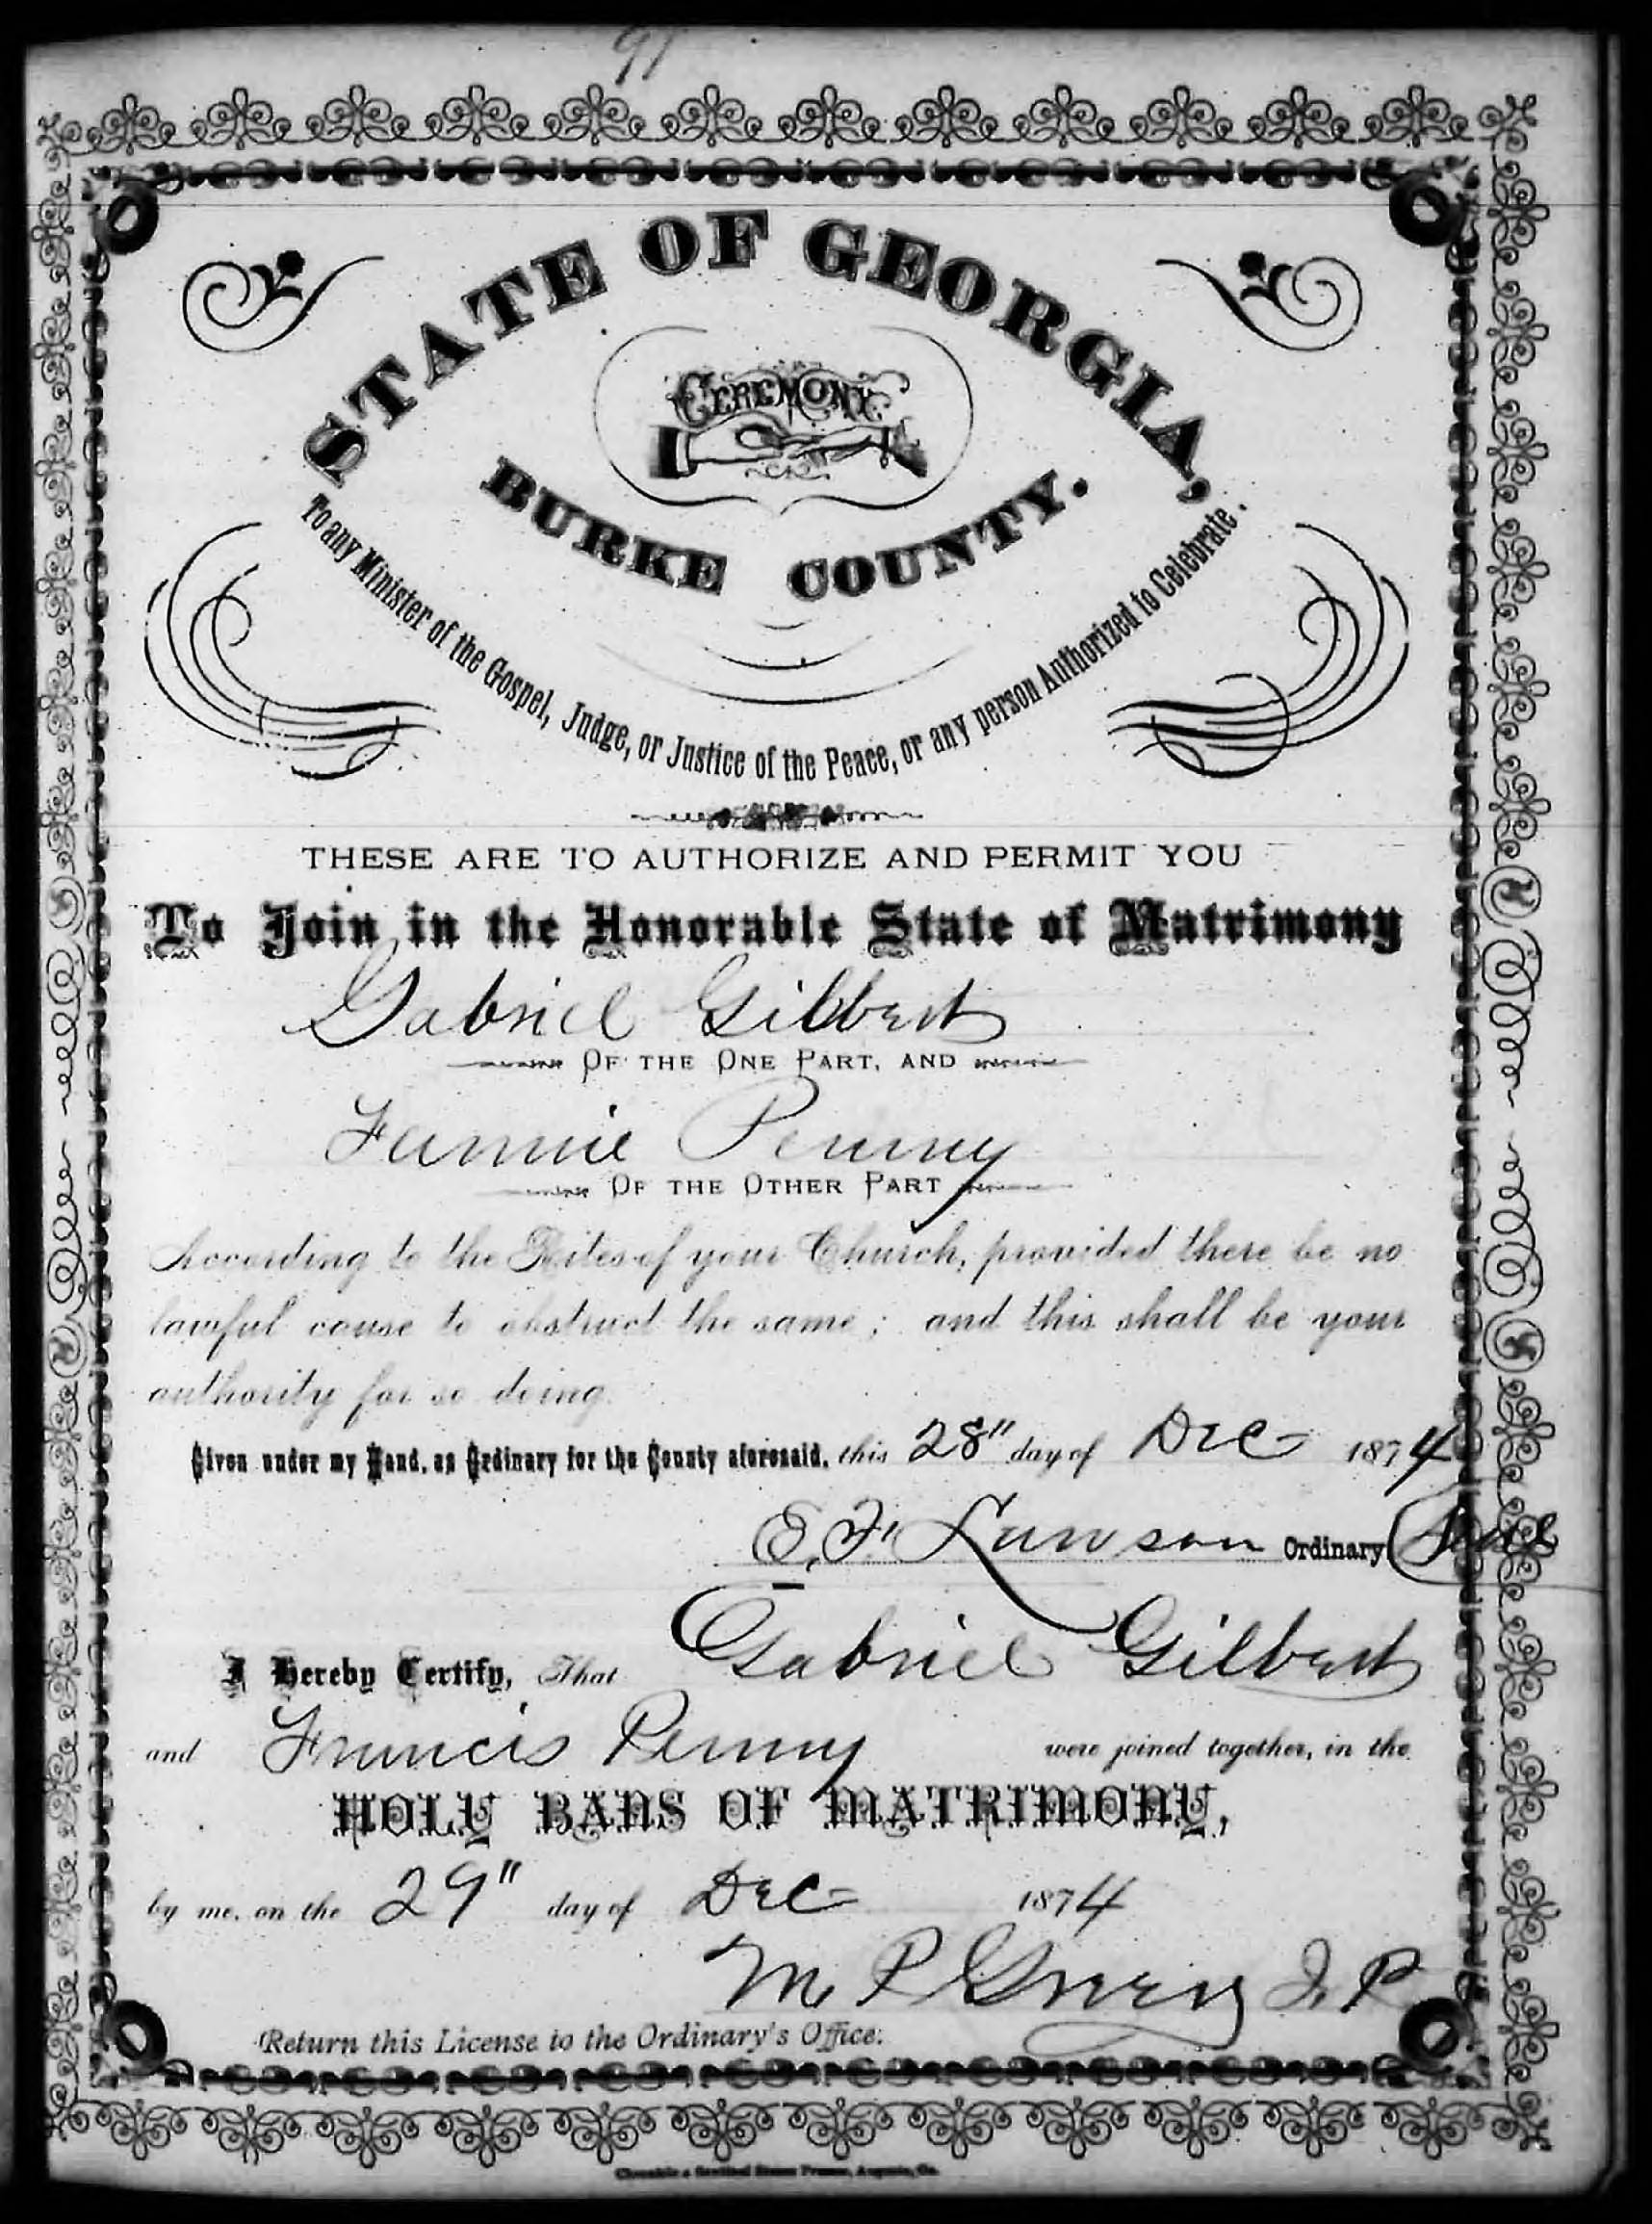 91
STATE OF GEORGIA,
CEREMONY
BURKE COUNTY.
To any Minister of the Gospel, Judge, or Justice of the Peace, or any person Authorized to Celebrate.
THESE ARE TO AUTHORIZE AND PERMIT YOU
To Join in the Honorable State of Matrimony
Gabriel Gilbert
OF THE ONE PART, AND
Fannie Penny
OF THE OTHER PART
According to the Rites of your Church, provided there be no
lawful cause to obstruct the same; and this shall be your
authority for so doing.
Given under my Hand, as Ordinary for the County aforesaid, this 28" day of Dec 1874
E. F. Lawson Ordinary Seal
I Hereby Certify, That Gabriel Gilbert
and Francis Penny were joined together, in the
HOLY BANS OF MATRIMONY,
by me, on the 29" day of Dec 1874
M P J. P.
Return this License to the Ordinary's Office.
Chronicle & Sentinel Steam Presses, Augusta, Ga.